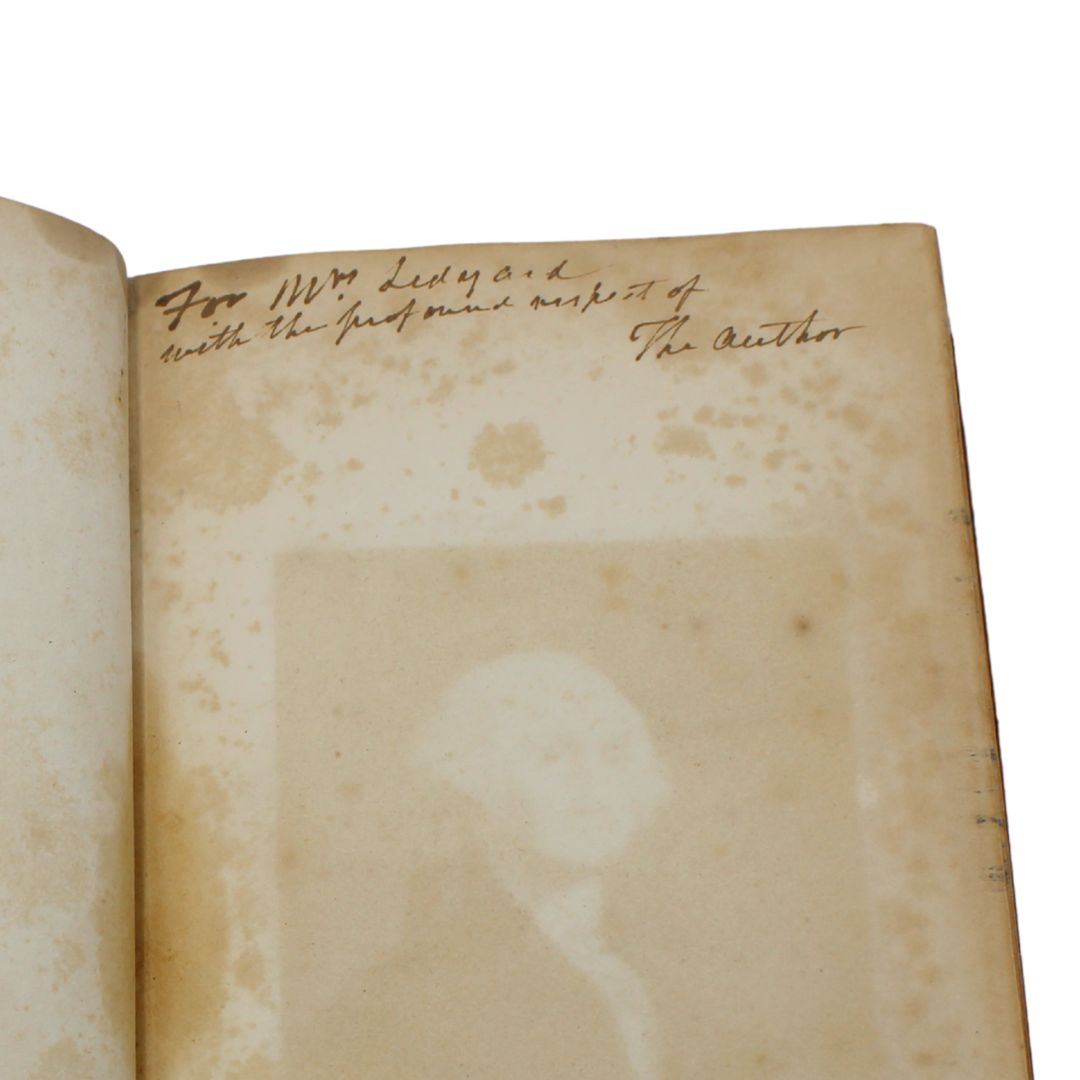 For Mrs. Ledyard
with the profound respect of
The author